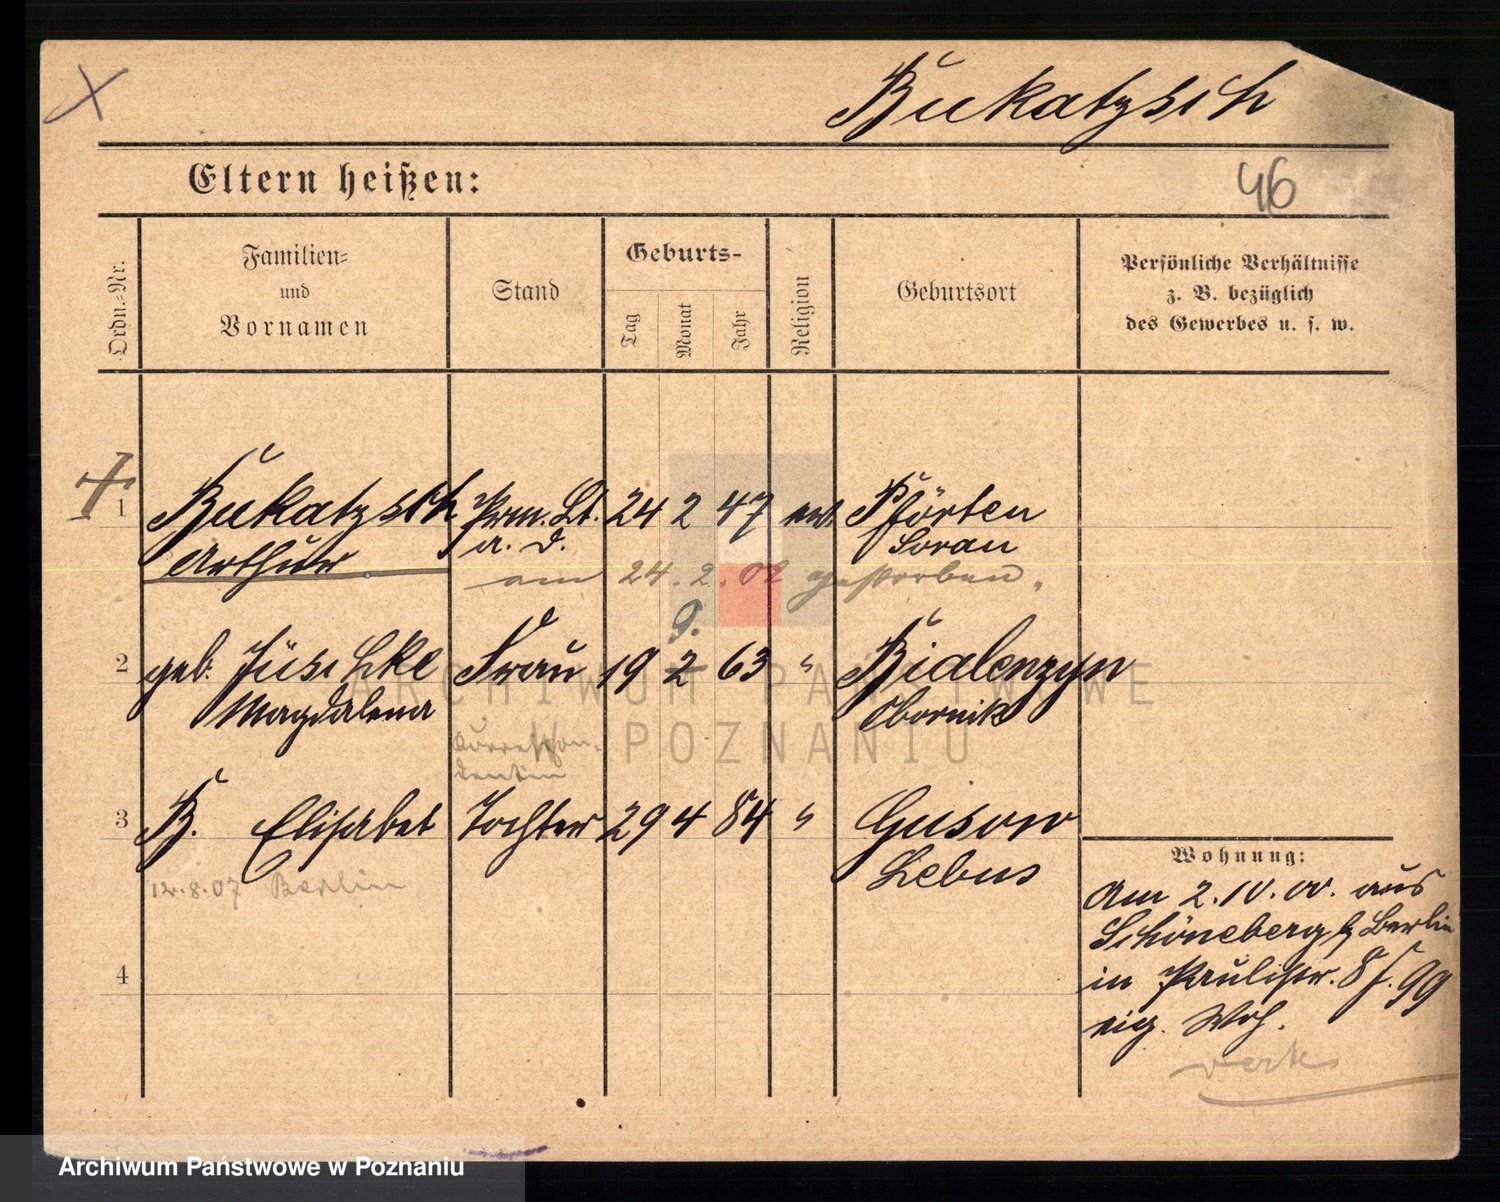 Bukatzsch
Eltern heißen:
46
Ordn.-Nr.
Familien-
und
Vornamen
Stand
Geburts-
Tag
Monat
Jahr
Religion
Geburtsort
Persönliche Verhältnisse
z. B. bezüglich
des Gewerbes u. s. w.
1 Bukatzsch Prm. Lt. 24 2 47 ev. Pförten
Arthur a. D. Sorau
am 24. 2. 02 gestorben.
9.
2 geb. Jüschke Frau 19 2 63 " Bialenzyn
Magdalena Obornik
Correspon-
dentin
3 B. Elisabet Tochter 29 4 84 " Gusow
Lebus
12.8.07 Berlin
4
Wohnung:
Am 2.10.00. aus
Schöneberg b/ Berlin
in Paulistr. 8 f. 99
eig. Woh.
ARCHIWUM PAŃSTWOWE
POZNANIU
Archiwum Państwowe w Poznaniu